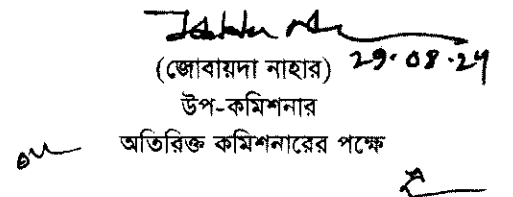 (জোবায়দা নাহার)
29.08.24
উপ-কমিশনার
অতিরিক্ত কমিশনারের পক্ষে